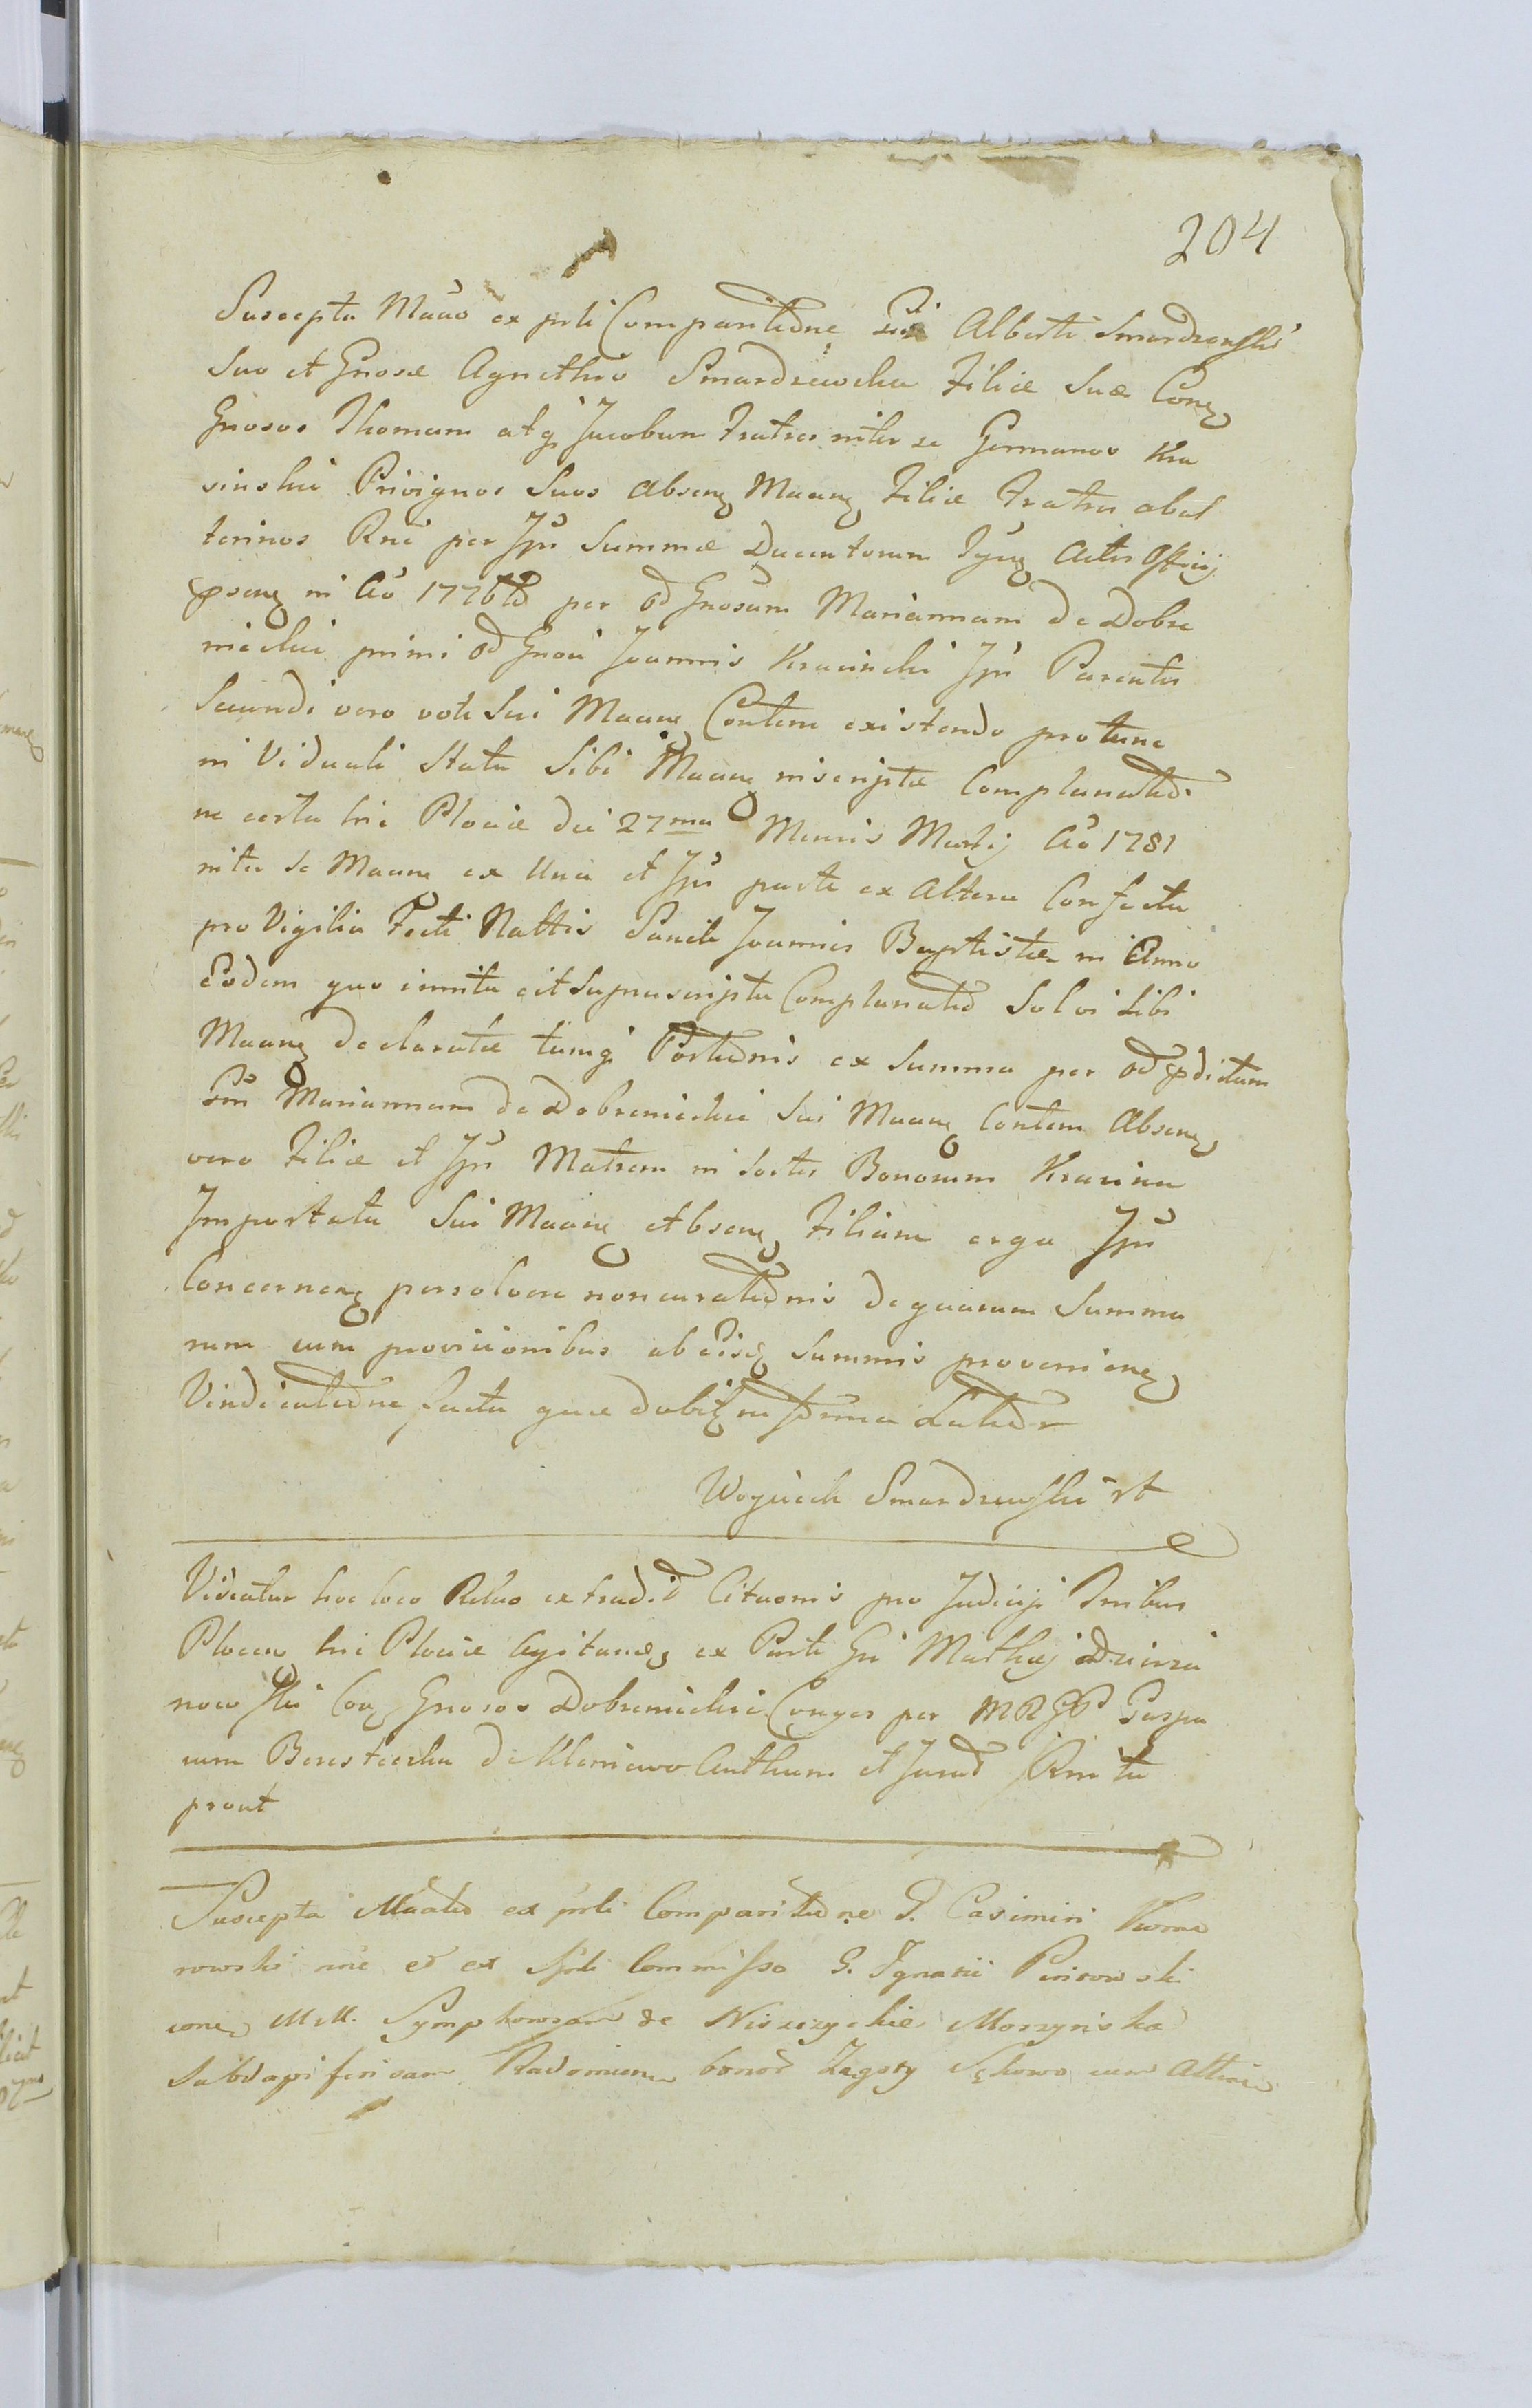 204
Suscepta Mâno ex prli Comparitiõne Gsi Alberti Smardzewski
Suo et Gnosæ Agnethis Smardzewska Filiæ Suæ Conq
Gnosos Thomam atq Jacobum Fratres inter se Germanos Kra
sinskie Privignos Suos Absenq Maanq Filiæ Fratres abut
terinos Rne per Jps Summæ Ducentorum Tynq Actis Officij
pseng in Aõ 1776to per od Gnosam Mariannam de Dobre
mieckie primi od Gnosi Joannis Krasinski Jps Parentis
Secundi vero voti Sui Maanq Contem existendo protunc
in Viduali Statu Sibi Maanq inscriptæ Complanatiõ
ne certa hic Plociæ die 27ma Mensis Martij Aõ 1781
inter se Maanq ex Una et Jps parte ex Altera Confecta
pro Vigilia Festi Nattis Sancti Joannis Baptistæ in Anno
Eodem quo innita est Suprascripta Complanatio Solvi Sibi
Maanq declaratæ tumq Portiõnis ex Summa per od pdictam
Gm Mariannam de Dobremieckie Sui Maanq Contem Absenq
vero Filiæ et Jps Matrem in Sortes Bonorum Krasina
Importata Sui Maanq Absenq Filiam erga Jps
Concernenq persolvere noncuratiõnis de quarum Summa
rum cum provisionibus ab eisq Summis provenienq
Vindicatiõne facta quæ dabitq in Termino Latior
Woyciech Smardzewski rt
Videatur hoc loco Relaõ extradiõ Citaõnis pro Judicijs Tribus
Plocen hic Plociæ Agitanq ex Parte Gsi Mathej Dzierza
nowski Conq Gnosos Dobremieckie Conges per MRGP Gaspa
rum Beresteczka de Kleniewo Authum et Jurat Rnita
prout
Suscepta Maatio ex prli Comparitiõne G. Casimiri Komo
rowski me et ex Spli Commisso G. Ignatii Piwowski
conq M. M. Symphorosam de Niszczyckie Morzynska
Subdapiferisam Radomien bonor Zagoty Sękowo cum Attinen